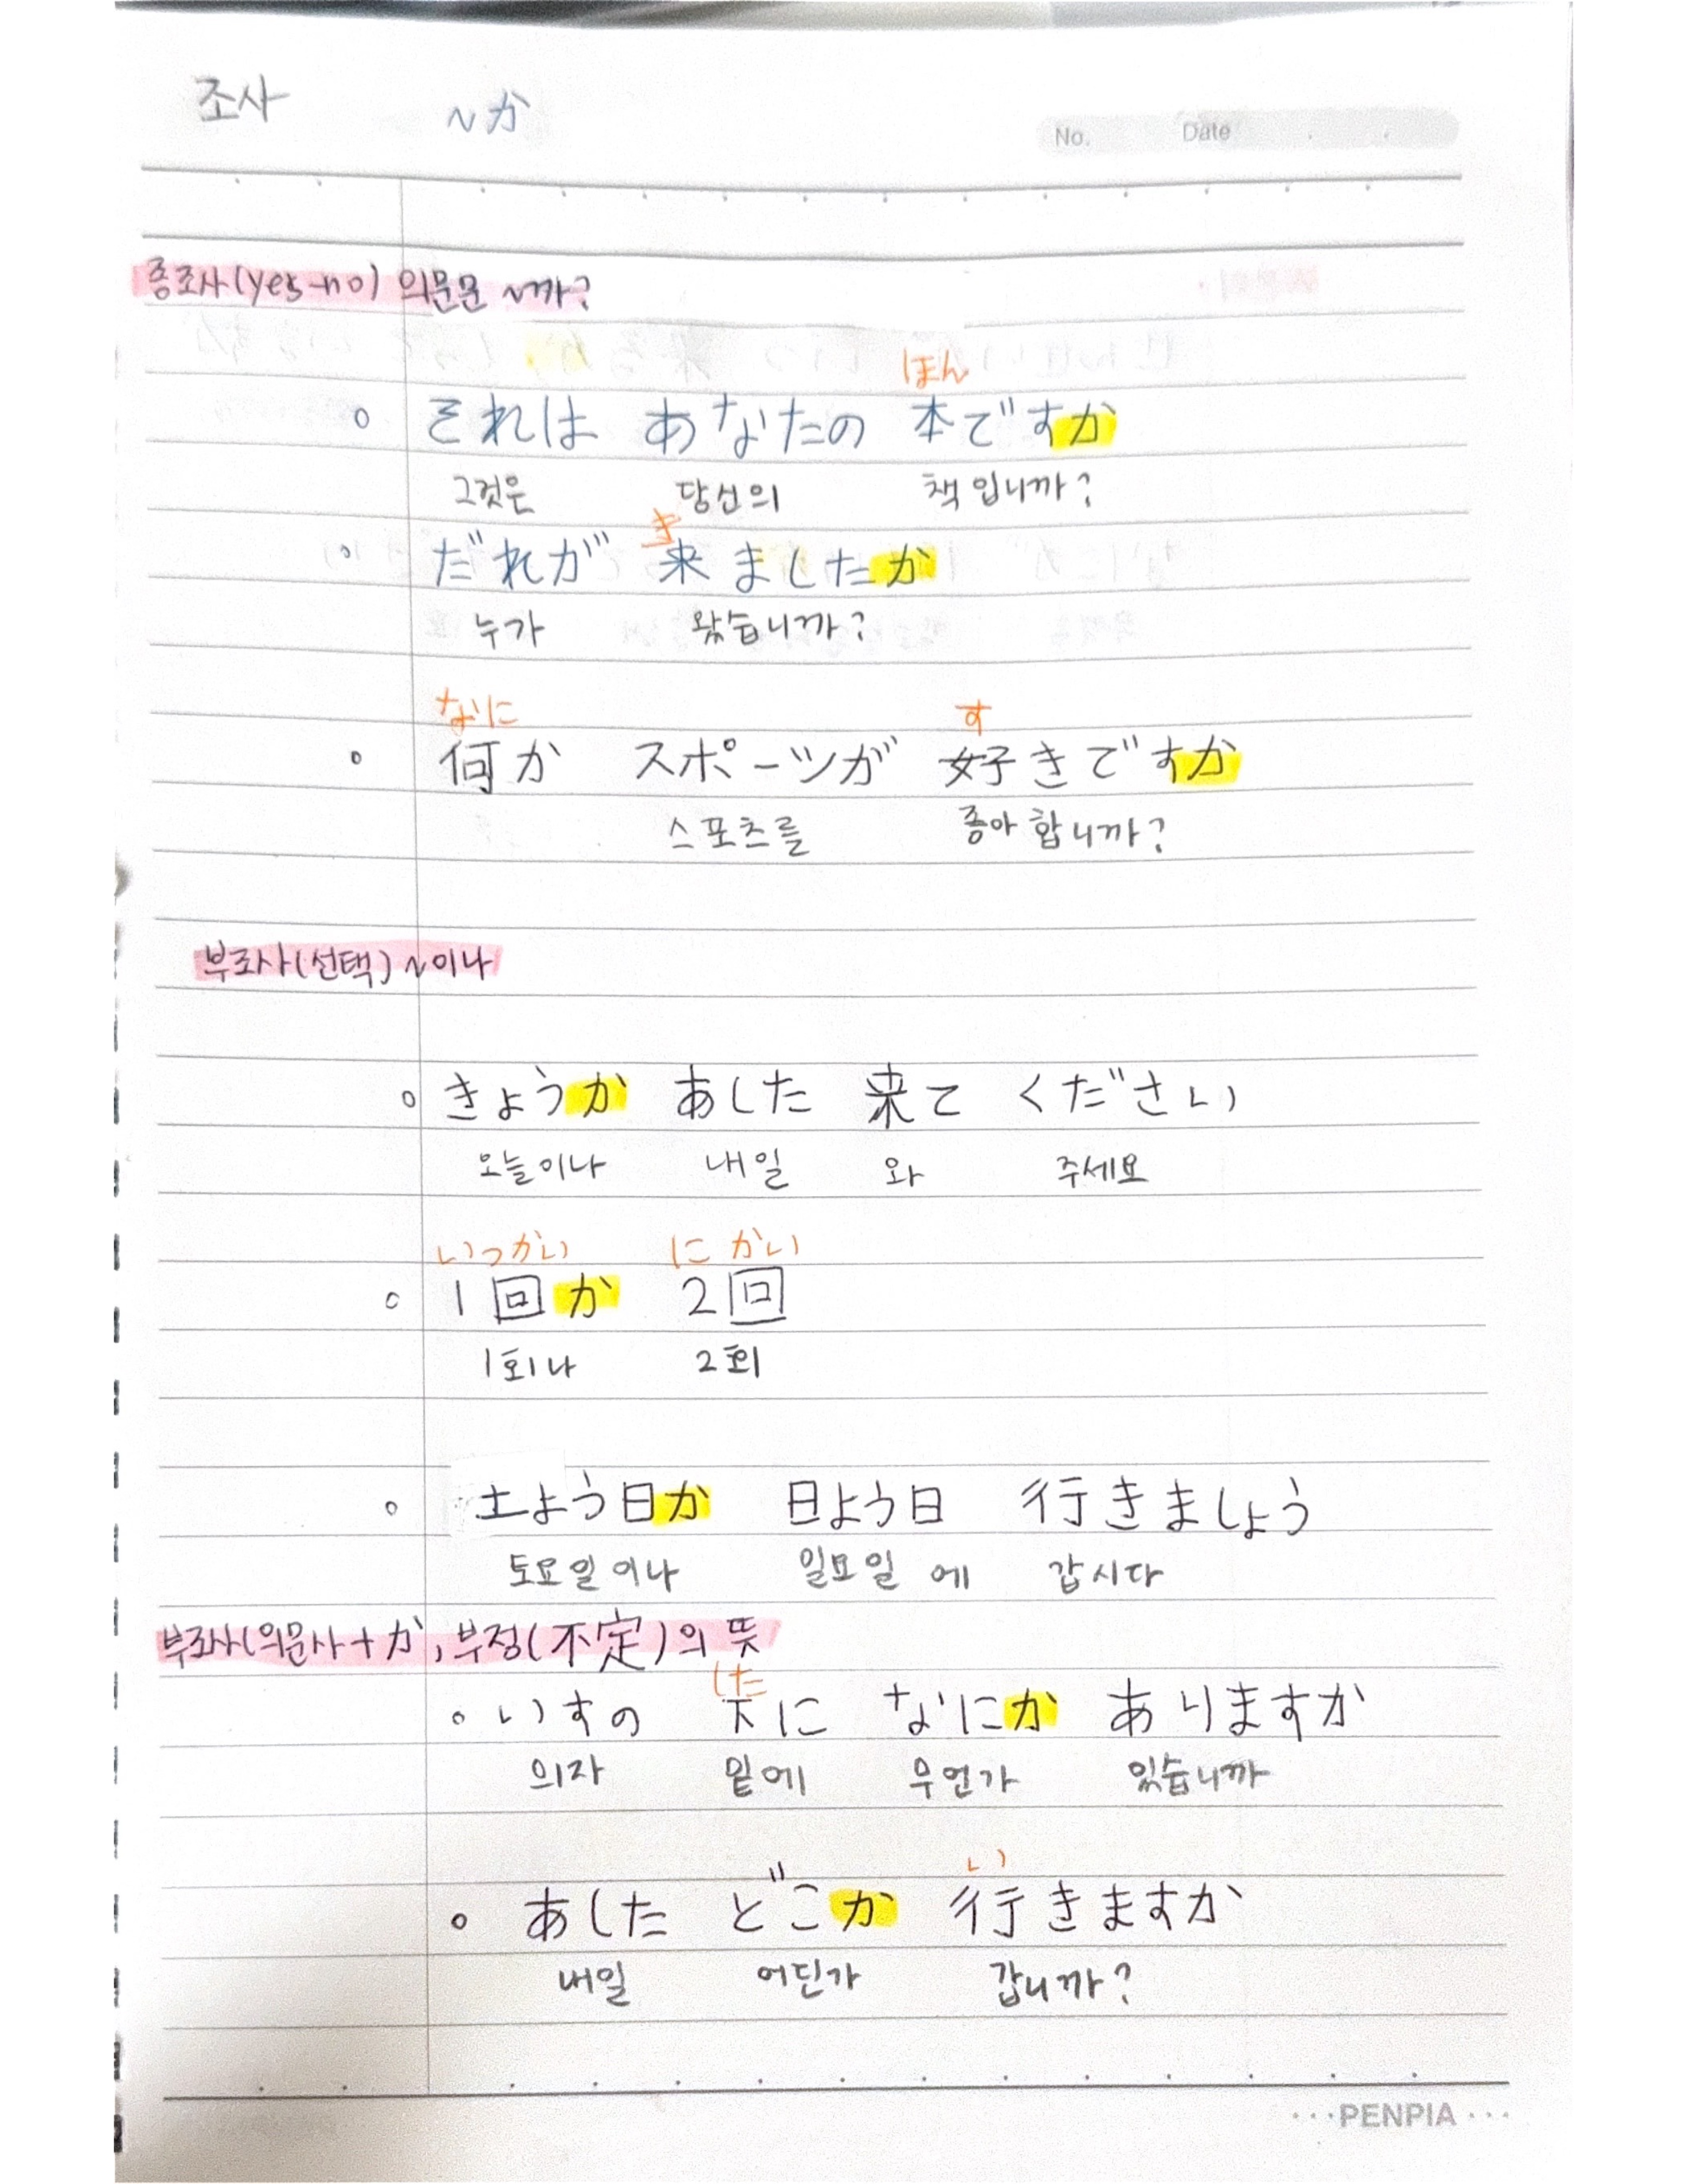 조사 ~か
No. Date
종조사(yes-no) 의문문 ~까?
ほん
それは あなたの 本ですか
그것은 당신의 책입니까?
き
だれが 来ましたか
누가 왔습니까?
なに す
何か スポーツが 好きですか
스포츠를 좋아합니까?
부조사(선택) ~이나
きょうか あした 来て ください
오늘이나 내일 와 주세요
いっかい にかい
1回か 2回
1회나 2회
土よう日か 日よう日 行きましょう
토요일이나 일요일에 갑시다
부조사(의문사+か, 부정(不定)의 뜻
した
いすの 下に なにか ありますか
의자 밑에 무언가 있습니까
い
あした どこか 行きますか
내일 어딘가 갑니까?
···PENPIA···